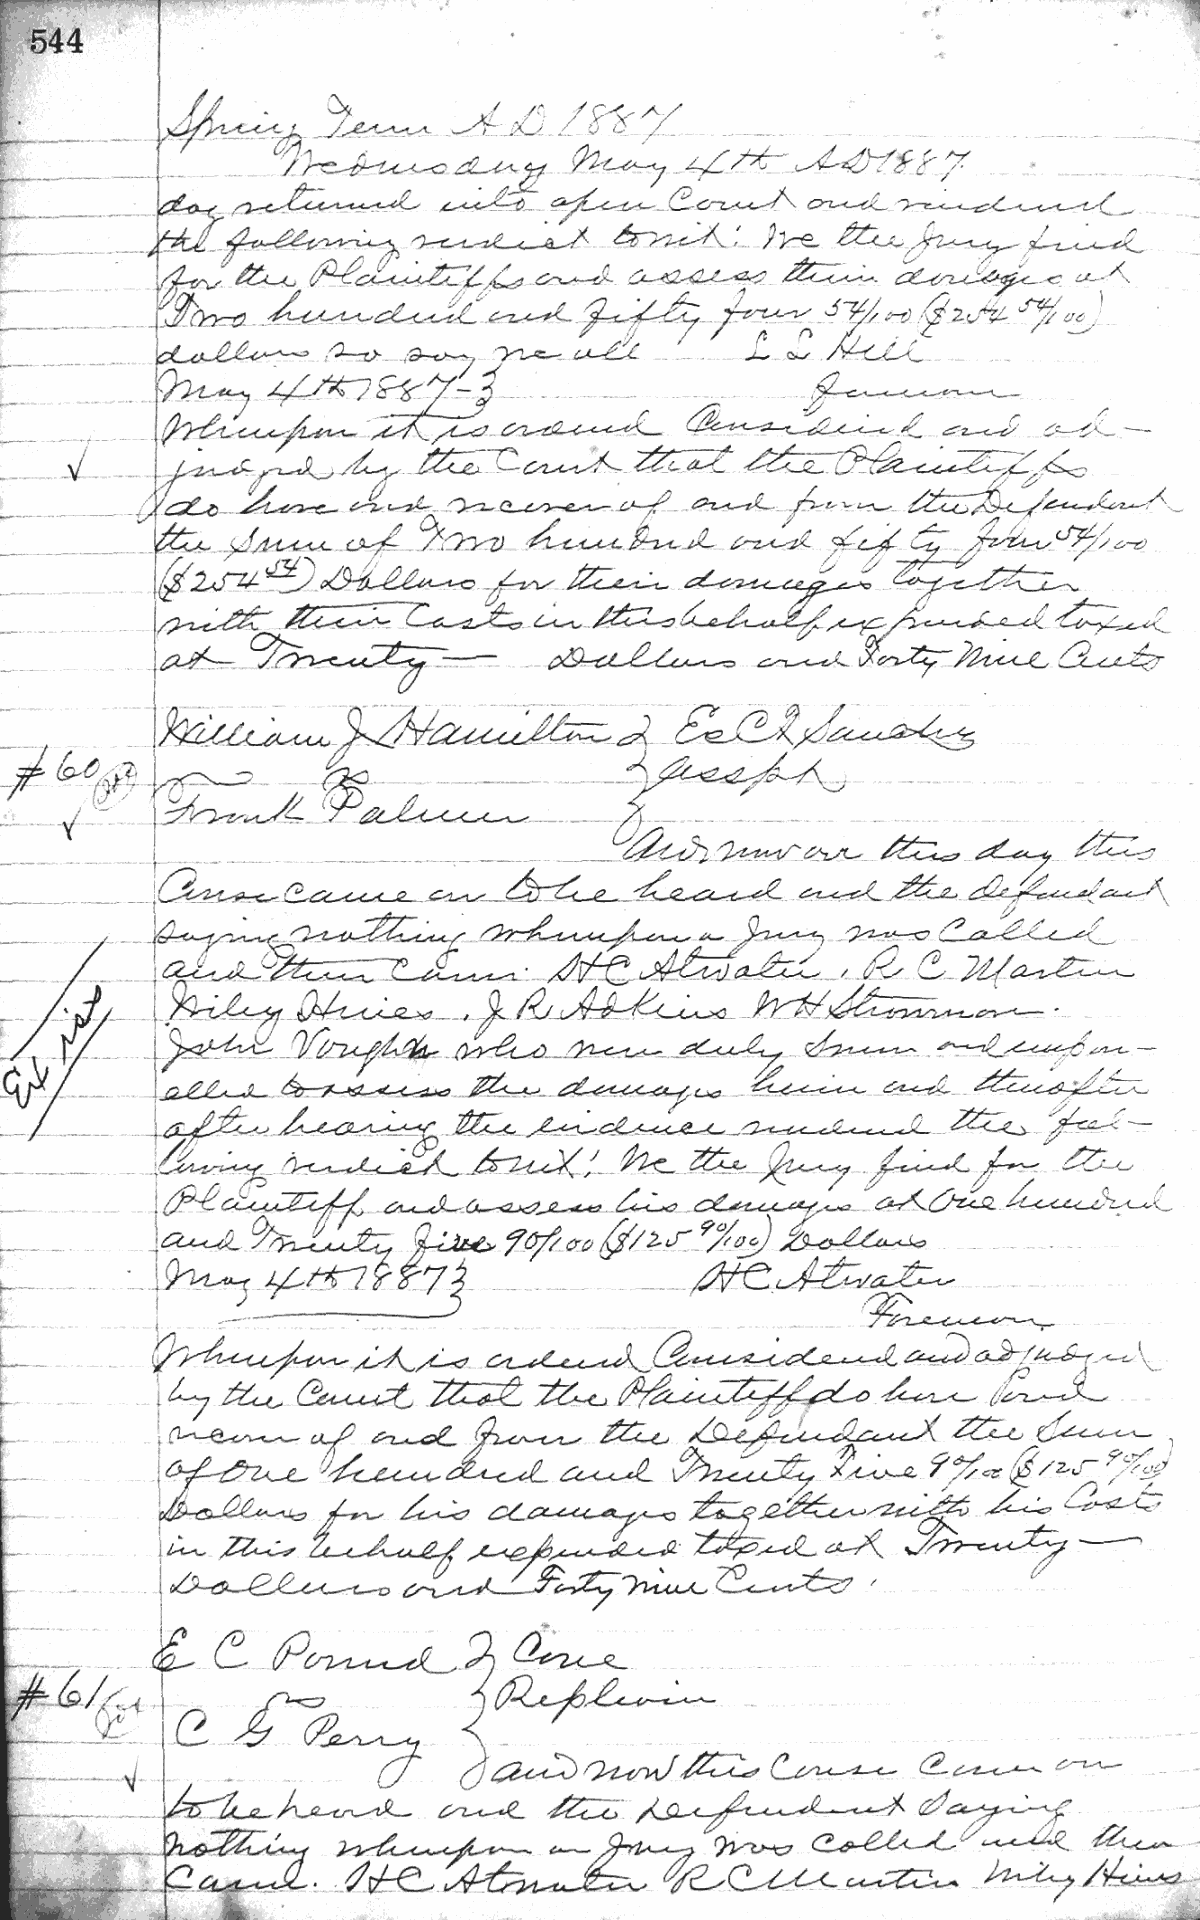 544
Spring Term A D 1887
Wednesday May 4th AD 1887.
day returned into open Court and rendered
the following verdict towit: We the Jury find
for the Plaintiffs and assess their damages at
Two hundred and fifty four 54/100 ($254 54/100)
dollars so say we all L L Hill
May 4th 1887 - } foreman
Whereupon it is ordered Considered and ad-
judged by the Court that the Plaintiffs
do have and recover of and from the Defendant
the Sum of Two hundred and fifty four 54/100
($254 54) Dollars for their damages together
with their Costs in this behalf expended taxed
at Twenty — Dollars and Forty Nine Cents
William J Hamilton }
#60 vs } Asspt
Frank Palmer }
And now on this day this
Cause came on to be heard and the defendant
saying nothing whereupon a Jury was Called
and then Came. H C Atwater, R C Martin
Wiley Hines, J R Adkins W H
John Vaughn who were duly Sworn and empan-
elled to assess the damages herein and thereafter
after hearing the evidence rendered the fol-
lowing verdict towit: We the Jury find for the
Plaintiff and assess his damages at One hundred
and Twenty five 90/100 ($125 90/100) Dollars
May 4th 1887 } H C Atwater
Foreman
Whereupon it is ordered Considered and adjudged
by the Court that the Plaintiff do have and
recover of and from the Defendant the Sum
of One hundred and Twenty Five 90/100 ($125 90/100)
Dollars for his damages together with his Costs
in this behalf expended taxed at Twenty —
Dollars and Forty Nine Cents.
E C Pound }
#61 vs } Replevin
C G Perry }
and now this Cause Came on
to be heard and the Defendant Saying
nothing whereupon a Jury was Called and then
Came. H C Atwater R C Martin Wiley Hines